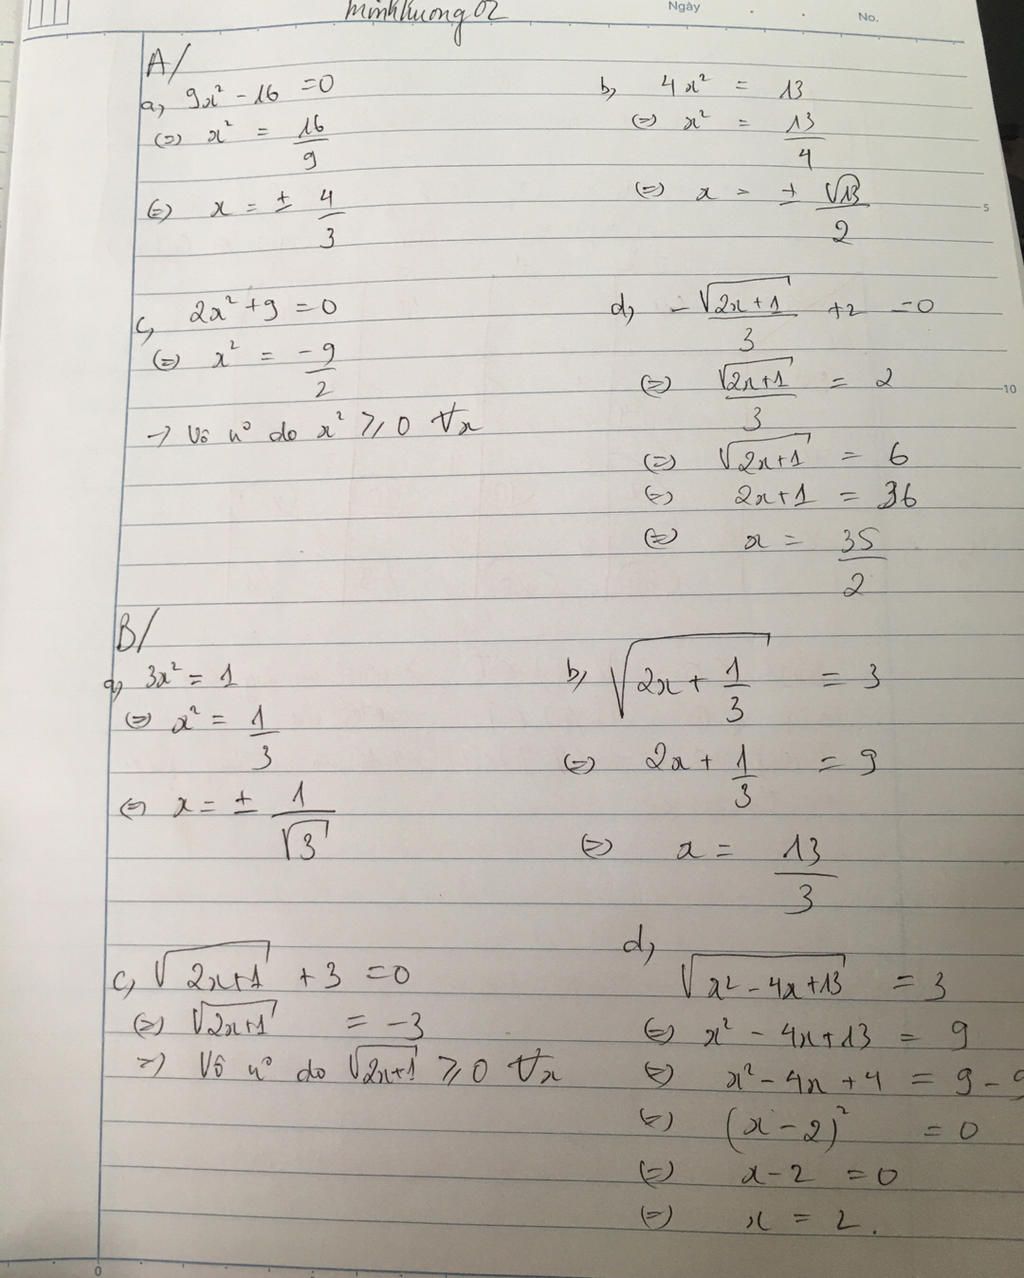 minhhuong02
Ngày . .
No.
A/
a, 9x² - 16 = 0
(=) x² = 16/9
(=) x = ± 4/3
b, 4x² = 13
(=) x² = 13/4
(=) x = ± √13/2
5
c, 2x² + 9 = 0
(=) x² = -9/2
→ Vô n⁰ do x² ⩾ 0 ∀x
d, -√(2x+1)/3 + 2 = 0
(=) √(2x+1)/3 = 2
10
(=) √(2x+1) = 6
(=) 2x+1 = 36
(=) x = 35/2
B/
a, 3x² = 1
(=) x² = 1/3
(=) x = ± 1/√3
b, √(2x + 1/3) = 3
(=) 2x + 1/3 = 9
(=) x = 13/3
c, √(2x+1) + 3 = 0
(=) √(2x+1) = -3
=) Vô n⁰ do √(2x+1) ⩾ 0 ∀x
d,
√(x² - 4x + 13) = 3
(=) x² - 4x + 13 = 9
(=) x² - 4x + 4 = 9 - 9
(=) (x - 2)² = 0
(=) x - 2 = 0
(=) x = 2.
0